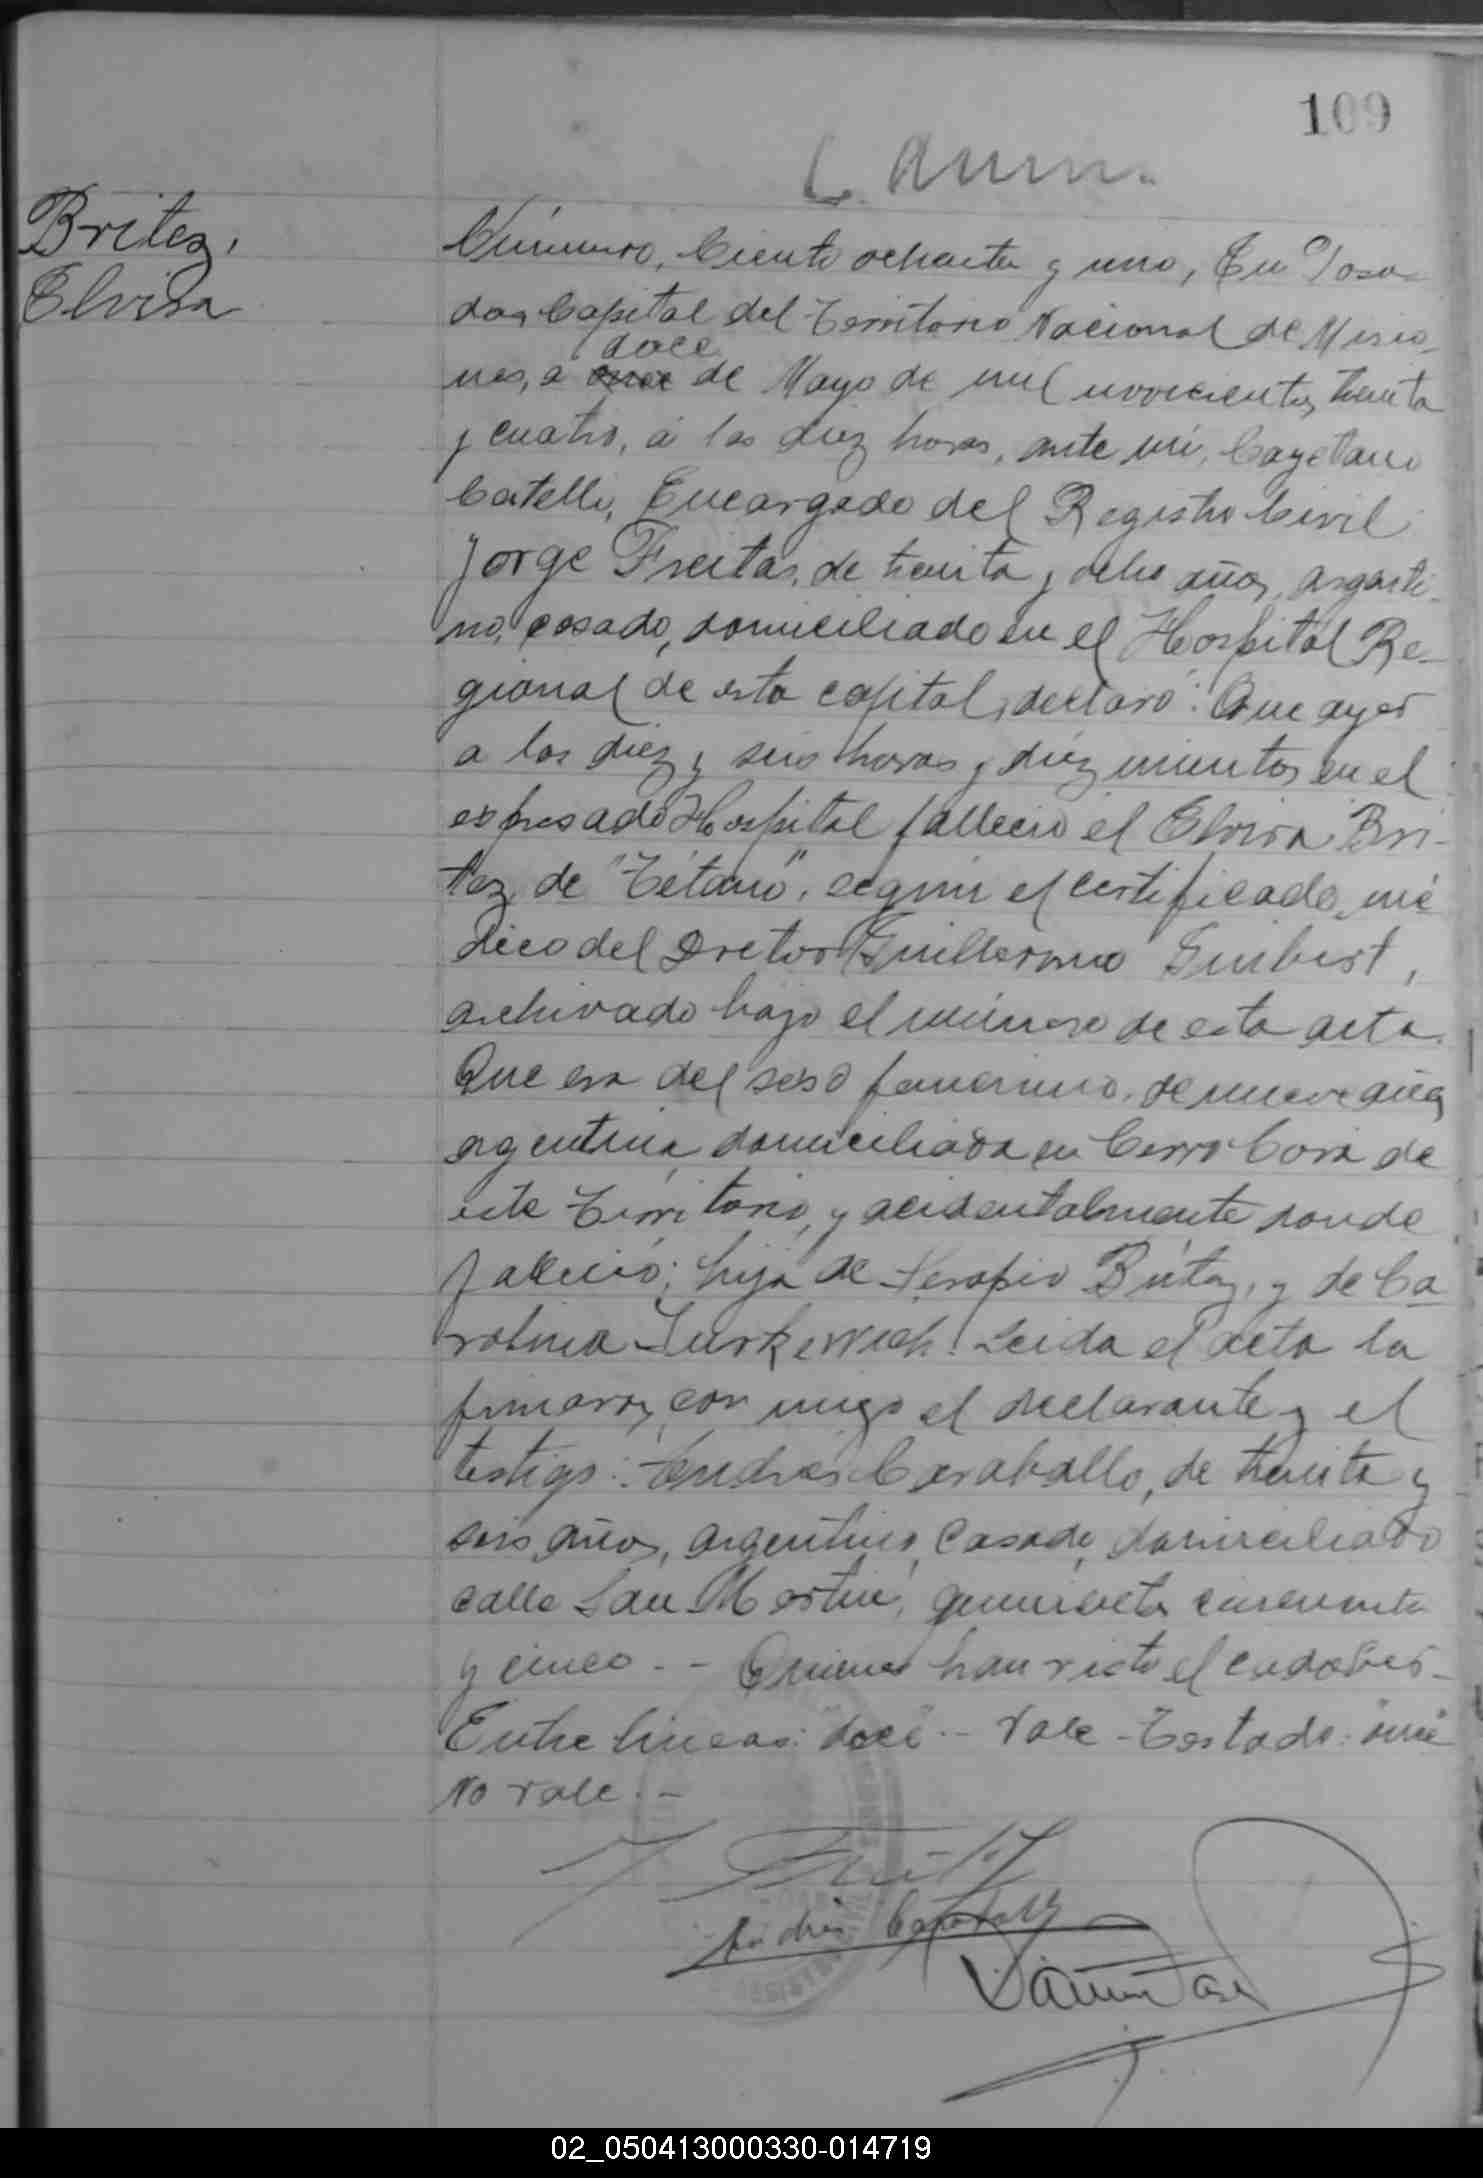 109
Britez,
Elvira
Número, Ciento ochenta y uno, En Posa-
das Capital del Territorio Nacional de Misio-
doce
nes, a once de Mayo de mil novecientos treinta
y cuatro, a las diez horas, ante mi, Cayetano
Castelli, Encargado del Registro Civil
Jorge Freitas, de treinta y ocho años, argenti-
no, casado, domiciliado en el Hospital Re-
gional de esta capital, declaró: Que ayer
a las diez y seis horas y diez minutos en el
expresado Hospital falleció el Elvira Bri-
tez, de "Tétano", según el certificado mé-
dico del Dretor Guillermo
archivado bajo el número de esta acta.
Que era del sexo femenino, de nueve años
argentina domiciliada en Cerro Corá de
este Territorio, y acidentalmente donde
falleció; hija de Serapio Brítez, y de Ca-
rolina Leida el acta la
firmaron con migo el declarante y el
testigo: Andrés Caraballo, de treinta y
seis años, argentino, casado, domiciliado
calle San Martín, quinientos cincuenta
y cinco. - - Quienes han visto el cadáver-
Entre lineas: "doce" - Vale - Testado: "once"
No vale. -
Andrés Caraballo
02_050413000330-014719